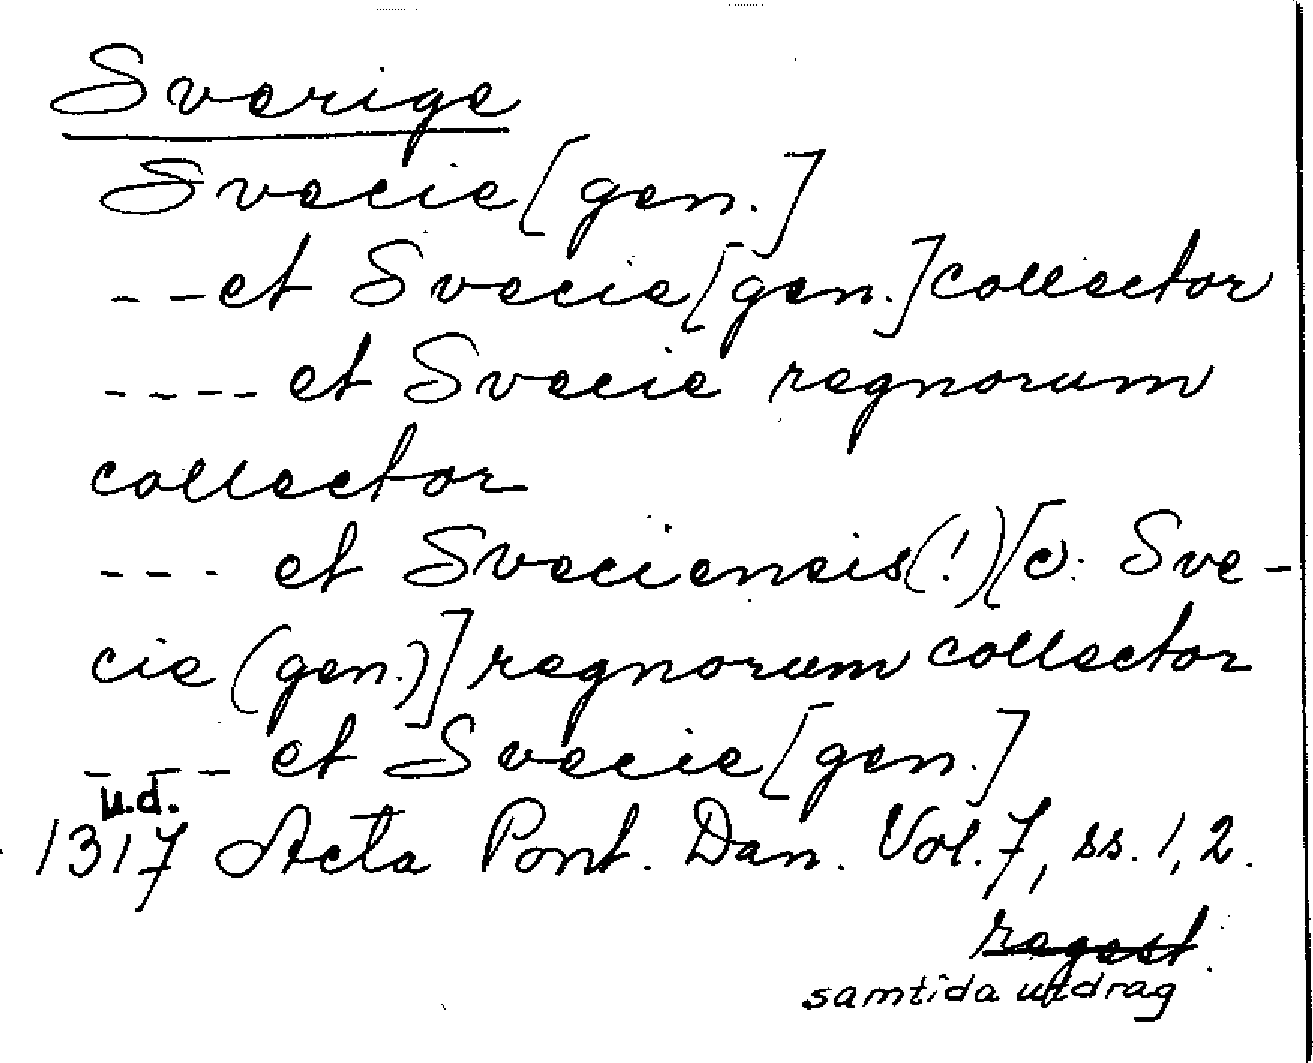 Sverige
Svecie [gen.]
- - et Svecie [gen.] collector
- - - - et Svecie regnorum
collector
- - - et Sveciensis (!) [ɔ: Sve-
cie (gen.)] regnorum collector
- - - et Svecie [gen.]
u.d.
1317 Acta Pont. Dan. Vol. 7, ss. 1, 2.
regest.
samtida utdrag